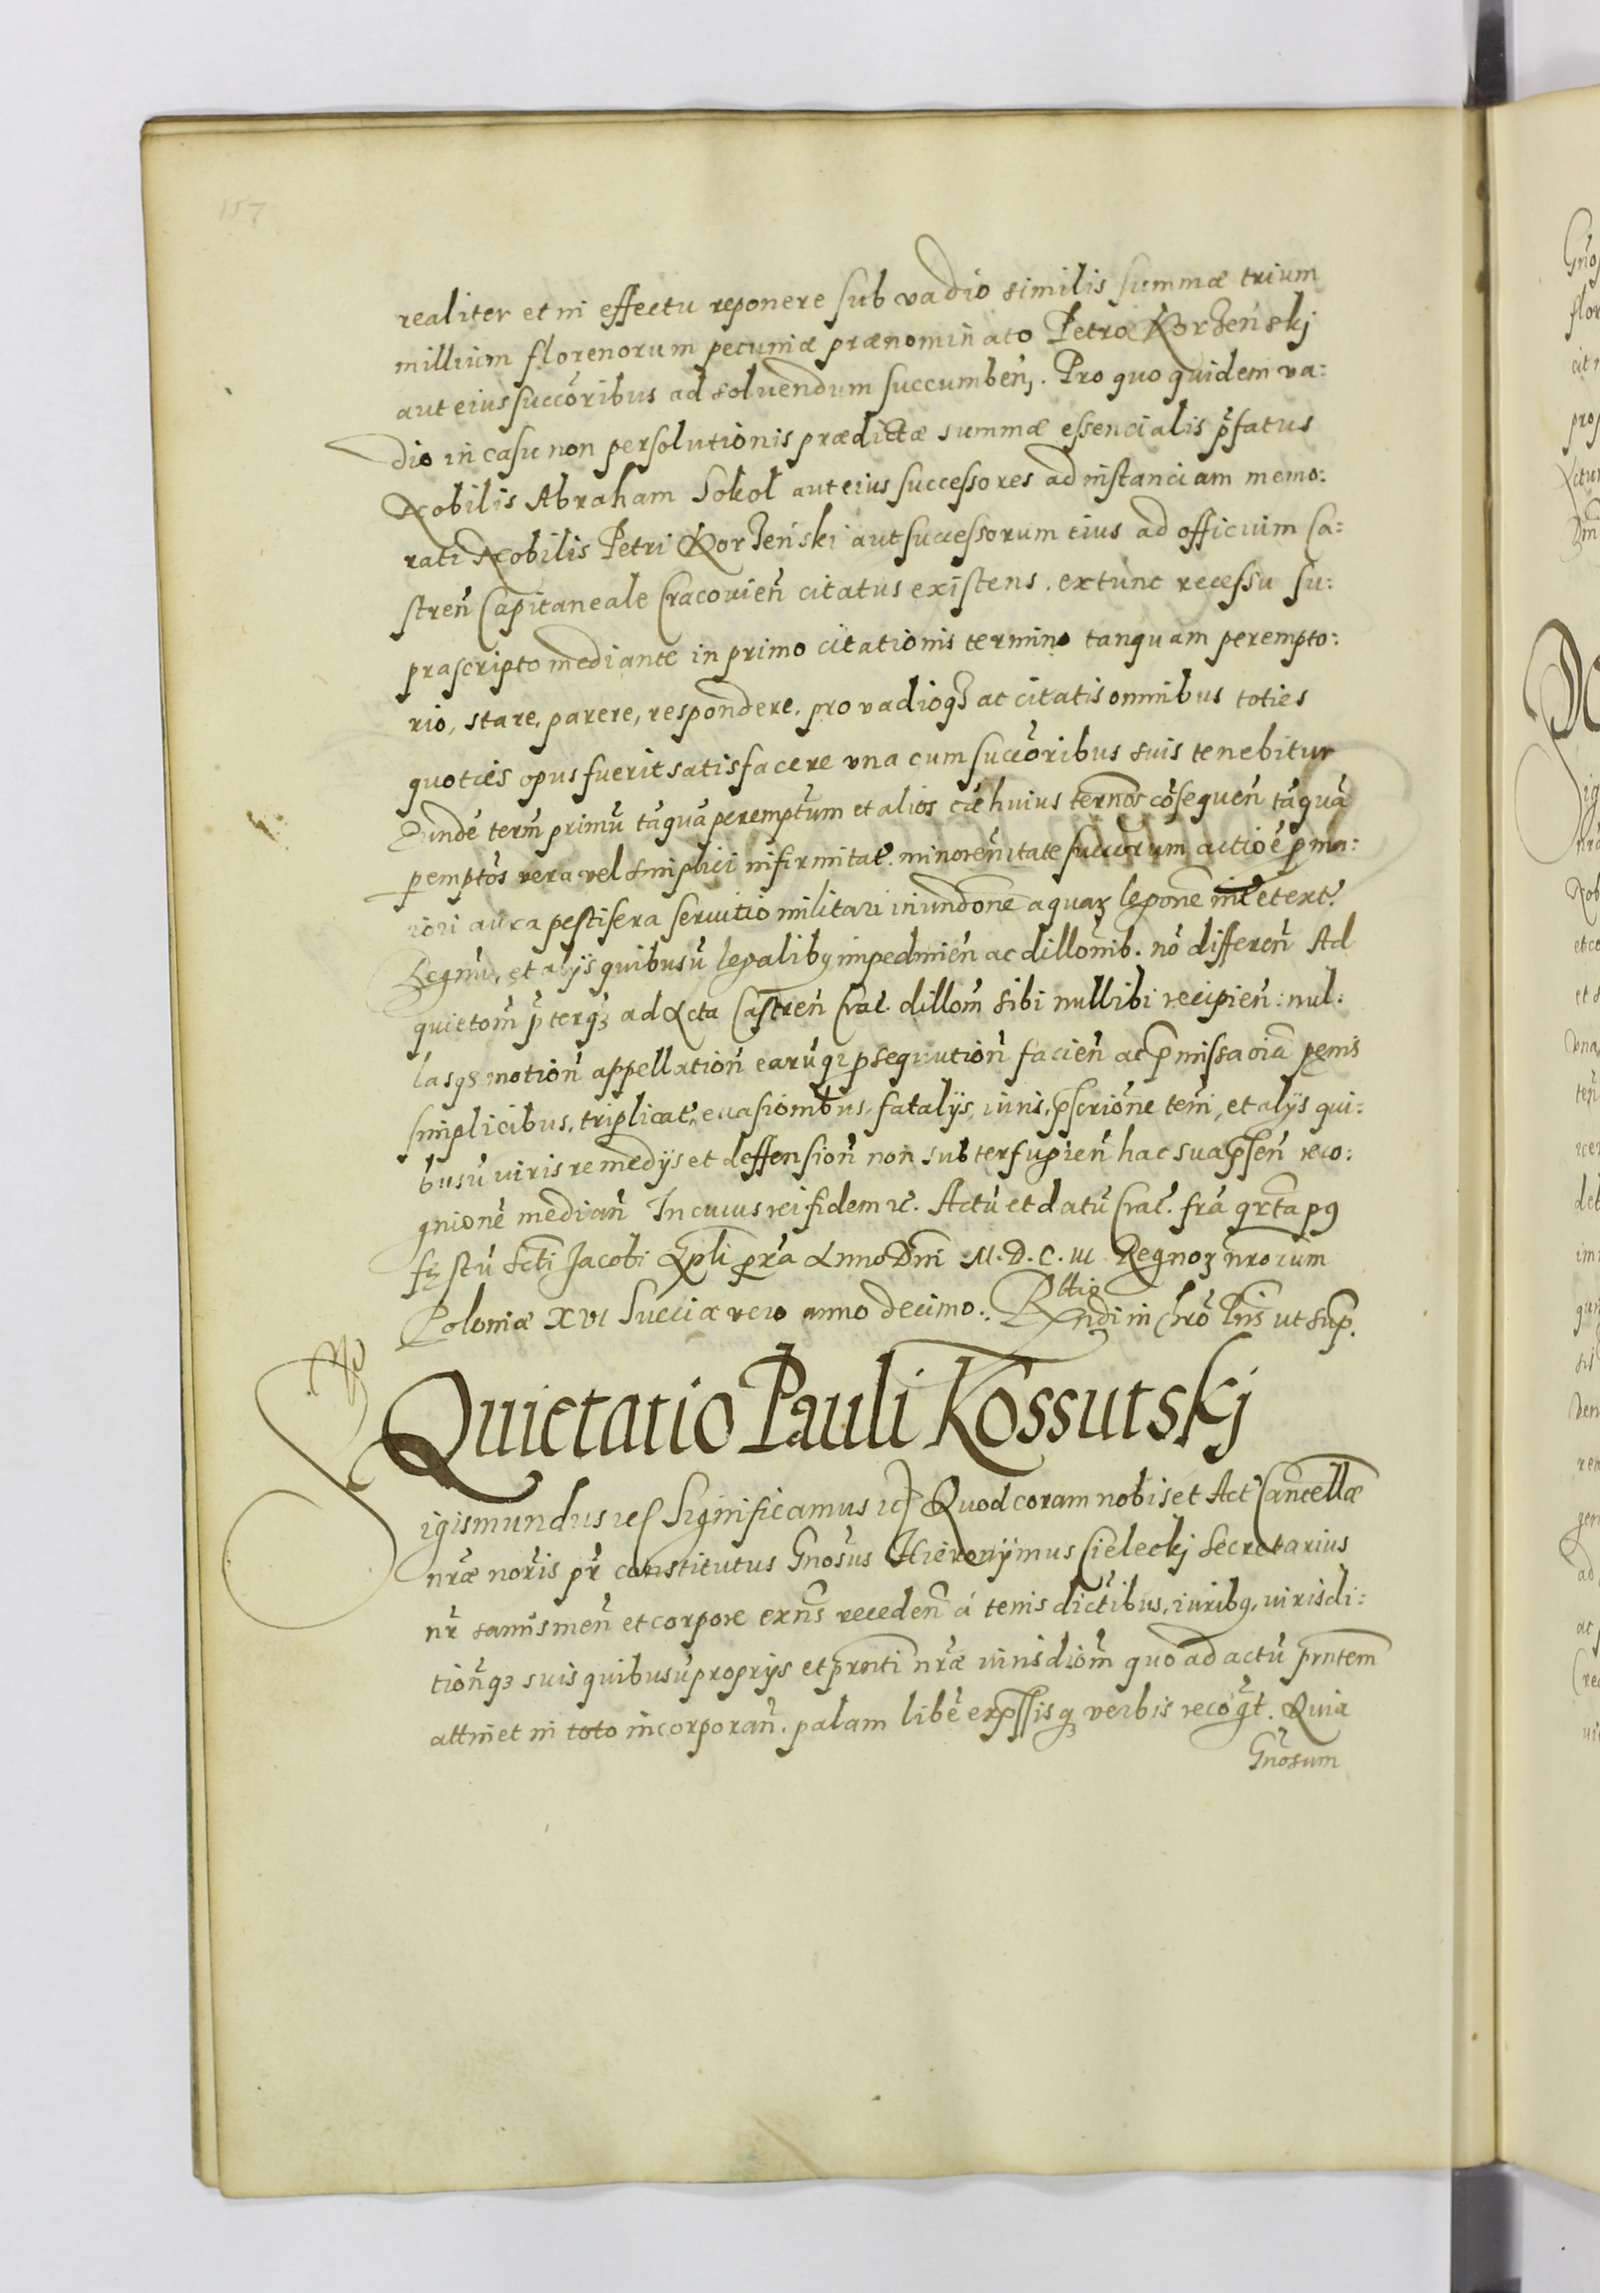 157
realiter et in effectu reponere sub vadio similis summæ trium
millium florenorum pecuniæ prænominato Petro Korzeńskj
aut eius succōribus ad soluendum succumbeñ. Pro quo quidem va:
dio in casu non persolutionis prædictæ summæ essencialis p̃fatus
Nobilis Abraham Sokoł aut eius successores ad instanciam memo:
rati Nobilis Petri Korzeński aut successorum eius ad officium Ca:
streñ Capitaneale Cracouieñ citatus existens. extunc recessu su:
prascripto mediante in primo citationis termino tanquam perempto:
rio, stare, parere, respondere. pro vadioq3 ac citatis omnibus toties
quoties opus fuerit satisfacere vna cum succōribus suis tenebitur
Eundē term̃ primū tāquā peremptum et alios cãe huius terños cōsequeñ tāquā
p̱emptōs vera vel simplici infirmitat̃. minoreñitate succōrum actiōe p̱ ma:
iori aura pestifera seruitio militari inundōne aquaȝ leḡone et ext̃.
Regnū, et alÿs quibusū legalibꝯ impedmieñ ac dillonib. nō differeñ Ad
quietom̃ p̃terq3 ad Acta Castreñ Crac̃. dillom̃ sibi nullibi recipieñ: nul:
lasq3 motioñ appellatioñ earūqꝫ p̱sequutioñ facieñ ac p̃missa oia̅ penis
simplicibus, triplicat̃, euasionibus, fatalÿs, iuris, p̱scriōne terri, et alÿs qui:
busū iuris remedÿs et deffensioñ non subterfugieñ hac sua p̃señ reco:
gnionē mediañ In cuius rei fidem ꝛc. Actū et datū Crac̃. fr̃a qrta pꝯ
fēstū Scti Jacobi Apli p̱r̃a Anno Dm̃ M.D.C.III Regnoȝ nr̃orum
Poloniæ XVI Sueciæ vero anno decimo. Rltio Rndi in Chrō Pris ut sup̱.
Quietatio Pauli Kossutskj
igismundus ꝛc Significamus ꝛc Quod coram nobis et Act̃ Cancellæ
nr̃æ noris p̱r̃ constitutus Gnōsus Hieronÿmus Cieleckj Secretarius
nr̃ sanus meñ et corpore exñs recedeñ á terris dictibus, iuribꝯ, iurisdi:
tioñq3 suis quibusū proprÿs et prn̄ti nr̃æ iurisdiom̃ quo ad actū prn̄tem
attinet in toto incorporañ. palam libē exp̱ssisqꝫ verbis recōgt. Quia
Gnōsum